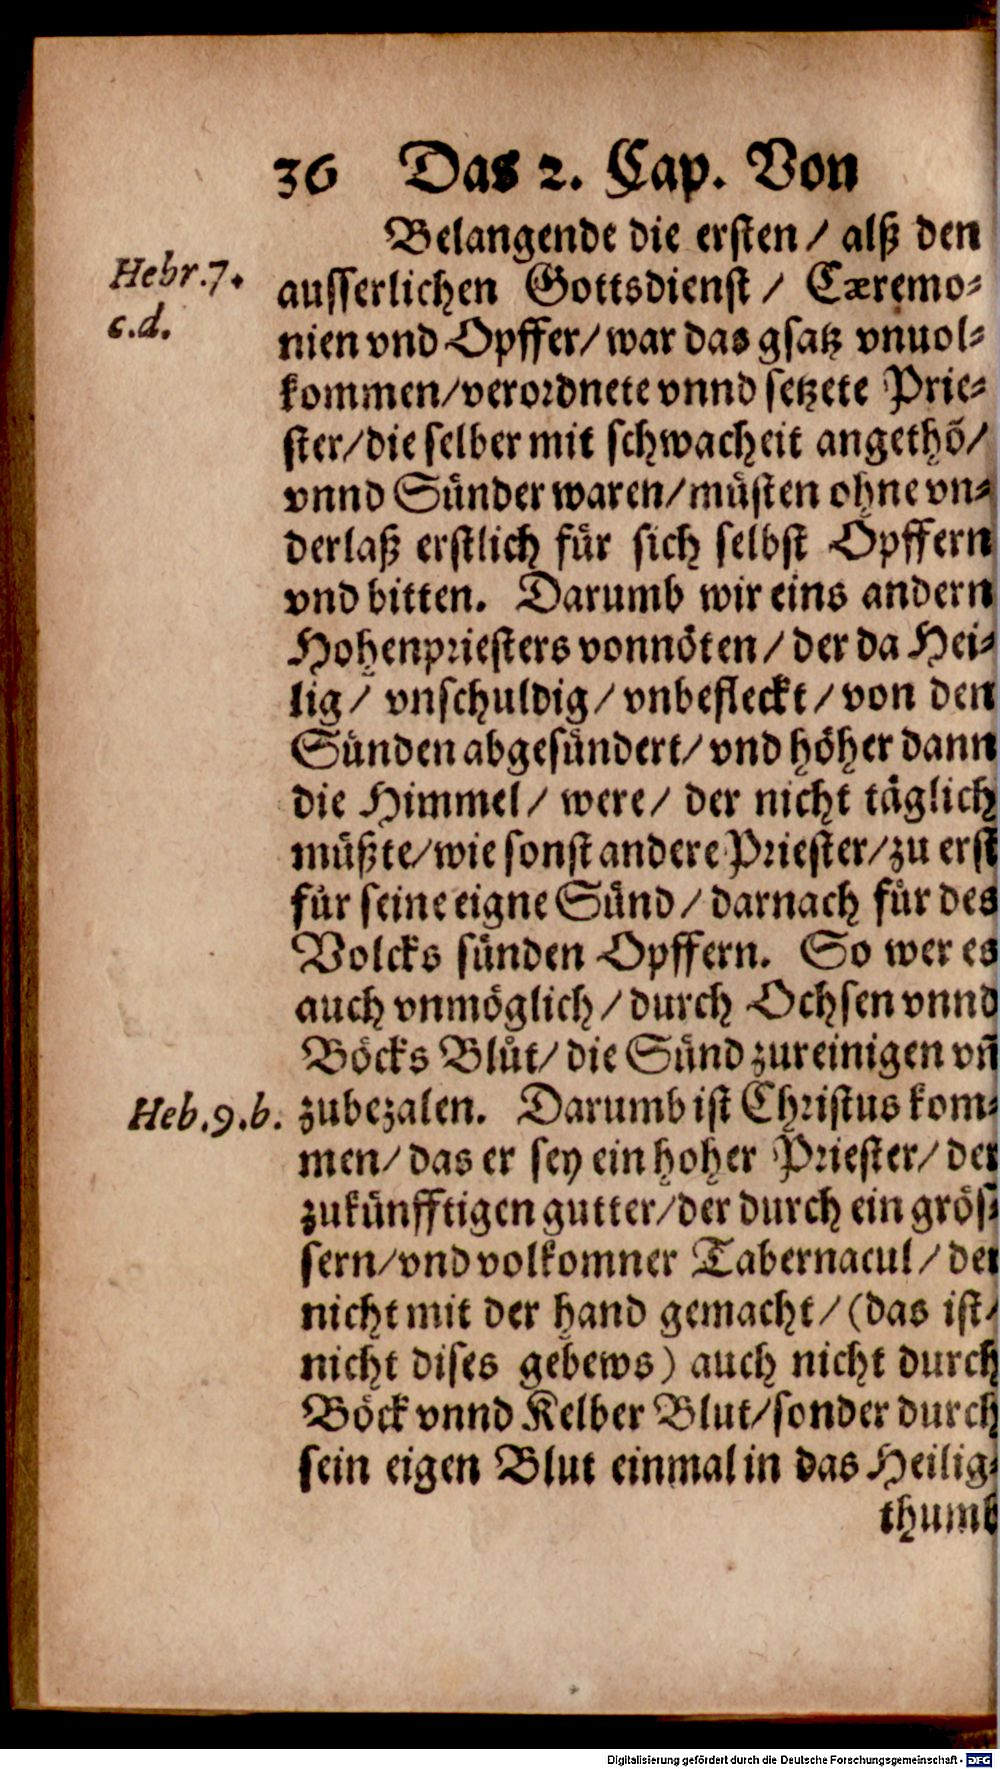 36 Das 2. Cap. Von
Belangende die ersten / alß den
Hebr.7.
ausserlichen Gottsdienst / Cæremo-
c.d.
nien vnd Opffer/ war das gsatz vnuol-
kommen/verordnete vnnd setzete Prie-
ster/die selber mit schwacheit angethō/
vnnd Sünder waren/müsten ohne vn-
derlaß erstlich für sich selbst Opffern
vnd bitten. Darumb wir eins andern
Hohenpriesters vonnöten / der da Hei-
lig / vnschuldig / vnbefleckt / von den
Sünden abgesündert/ vnd höher dann
die Himmel / were / der nicht täglich
müßte/wie sonst andere Priester/zu erst
für seine eigne Sünd / darnach für des
Volcks sünden Opffern. So wer es
auch vnmöglich / durch Ochsen vnnd
Böcks Blůt/ die Sünd zureinigen vn̄
Heb.9.b. zubezalen. Darumb ist Christus kom-
men/ das er sey ein hoher Priester/ der
zukünfftigen gutter/der durch ein grös-
sern/vnd volkomner Tabernacul / der
nicht mit der hand gemacht / (das ist/
nicht dises gebews) auch nicht durch
Böck vnnd Kelber Blut/sonder durch
sein eigen Blut einmal in das Heilig-
thumb
Digitalisierung gefördert durch die Deutsche Forschungsgemeinschaft - DFG